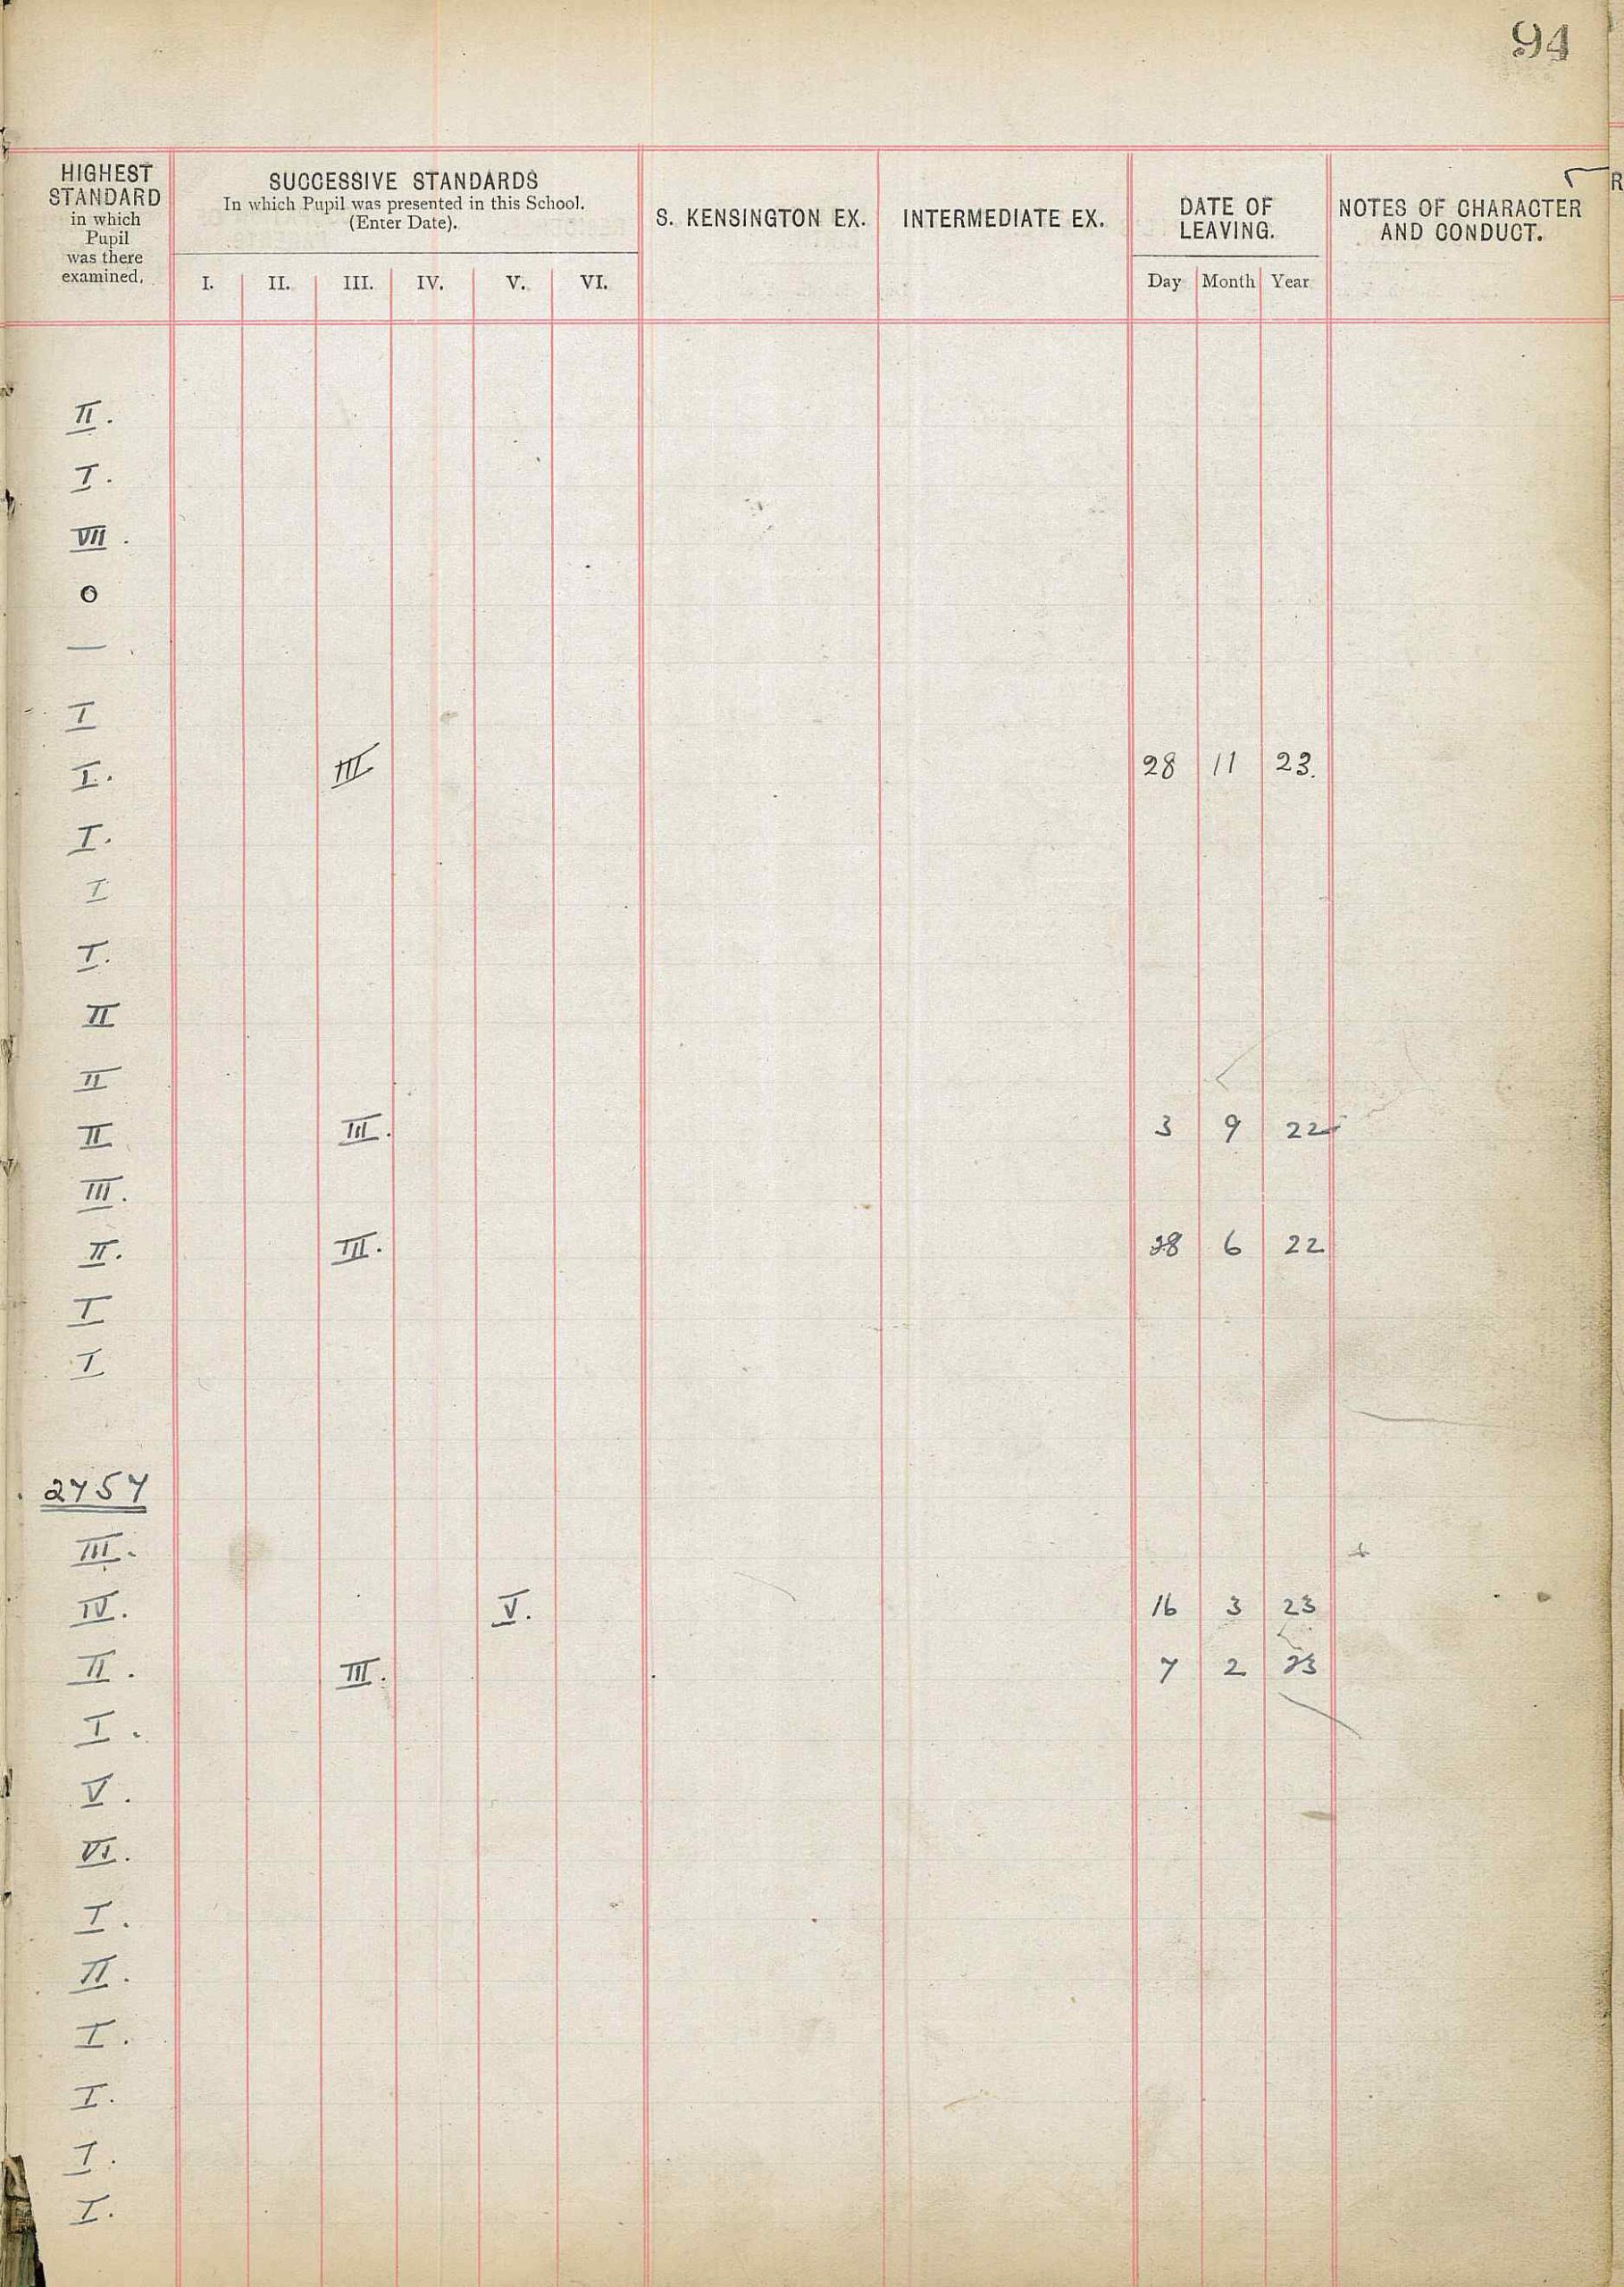 94
HIGHEST STANDARD in which Pupil was there examined.
SUCCESSIVE STANDARDS
In which Pupil was presented in this School.
(Enter Date).
I. II. III. IV. V. VI.
S. KENSINGTON EX.
INTERMEDIATE EX.
DATE OF LEAVING.
Day Month Year
NOTES OF CHARACTER AND CONDUCT.
R
II.
I.
VII.
0
—
I
I. III 28 11 23.
I.
I
I.
II
II
II III. 3 9 22
III.
II. III. 28 6 22
I
I
2757
III.
IV. V. 16 3 23
II. III. 7 2 23
I.
V.
VI.
I.
II.
I.
I.
I.
I.